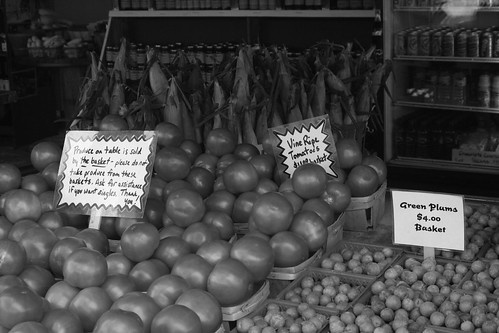 Produce on table is sold
by the basket - please do not
take produce from these
baskets. Ask for assistance
if you want singles. Thank
you
Vine Ripe
Tomatoes
basket
Green Plums
$4.00
Basket